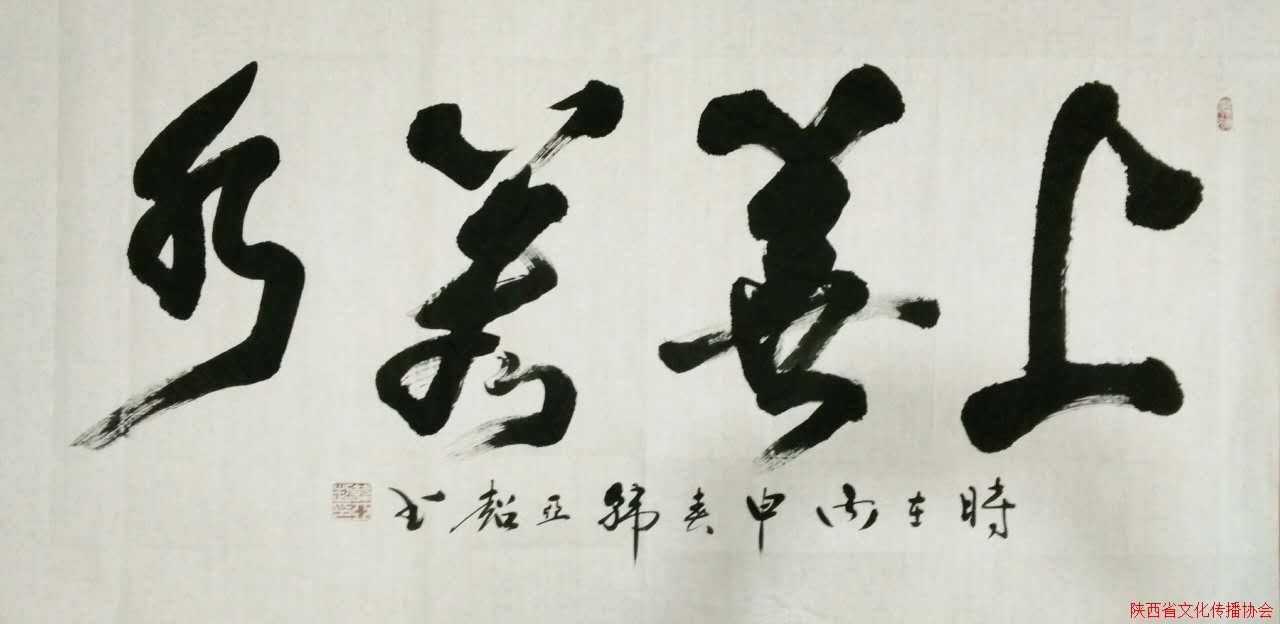 上善若水
時在丙申春韩亚超书
陕西省文化传播协会